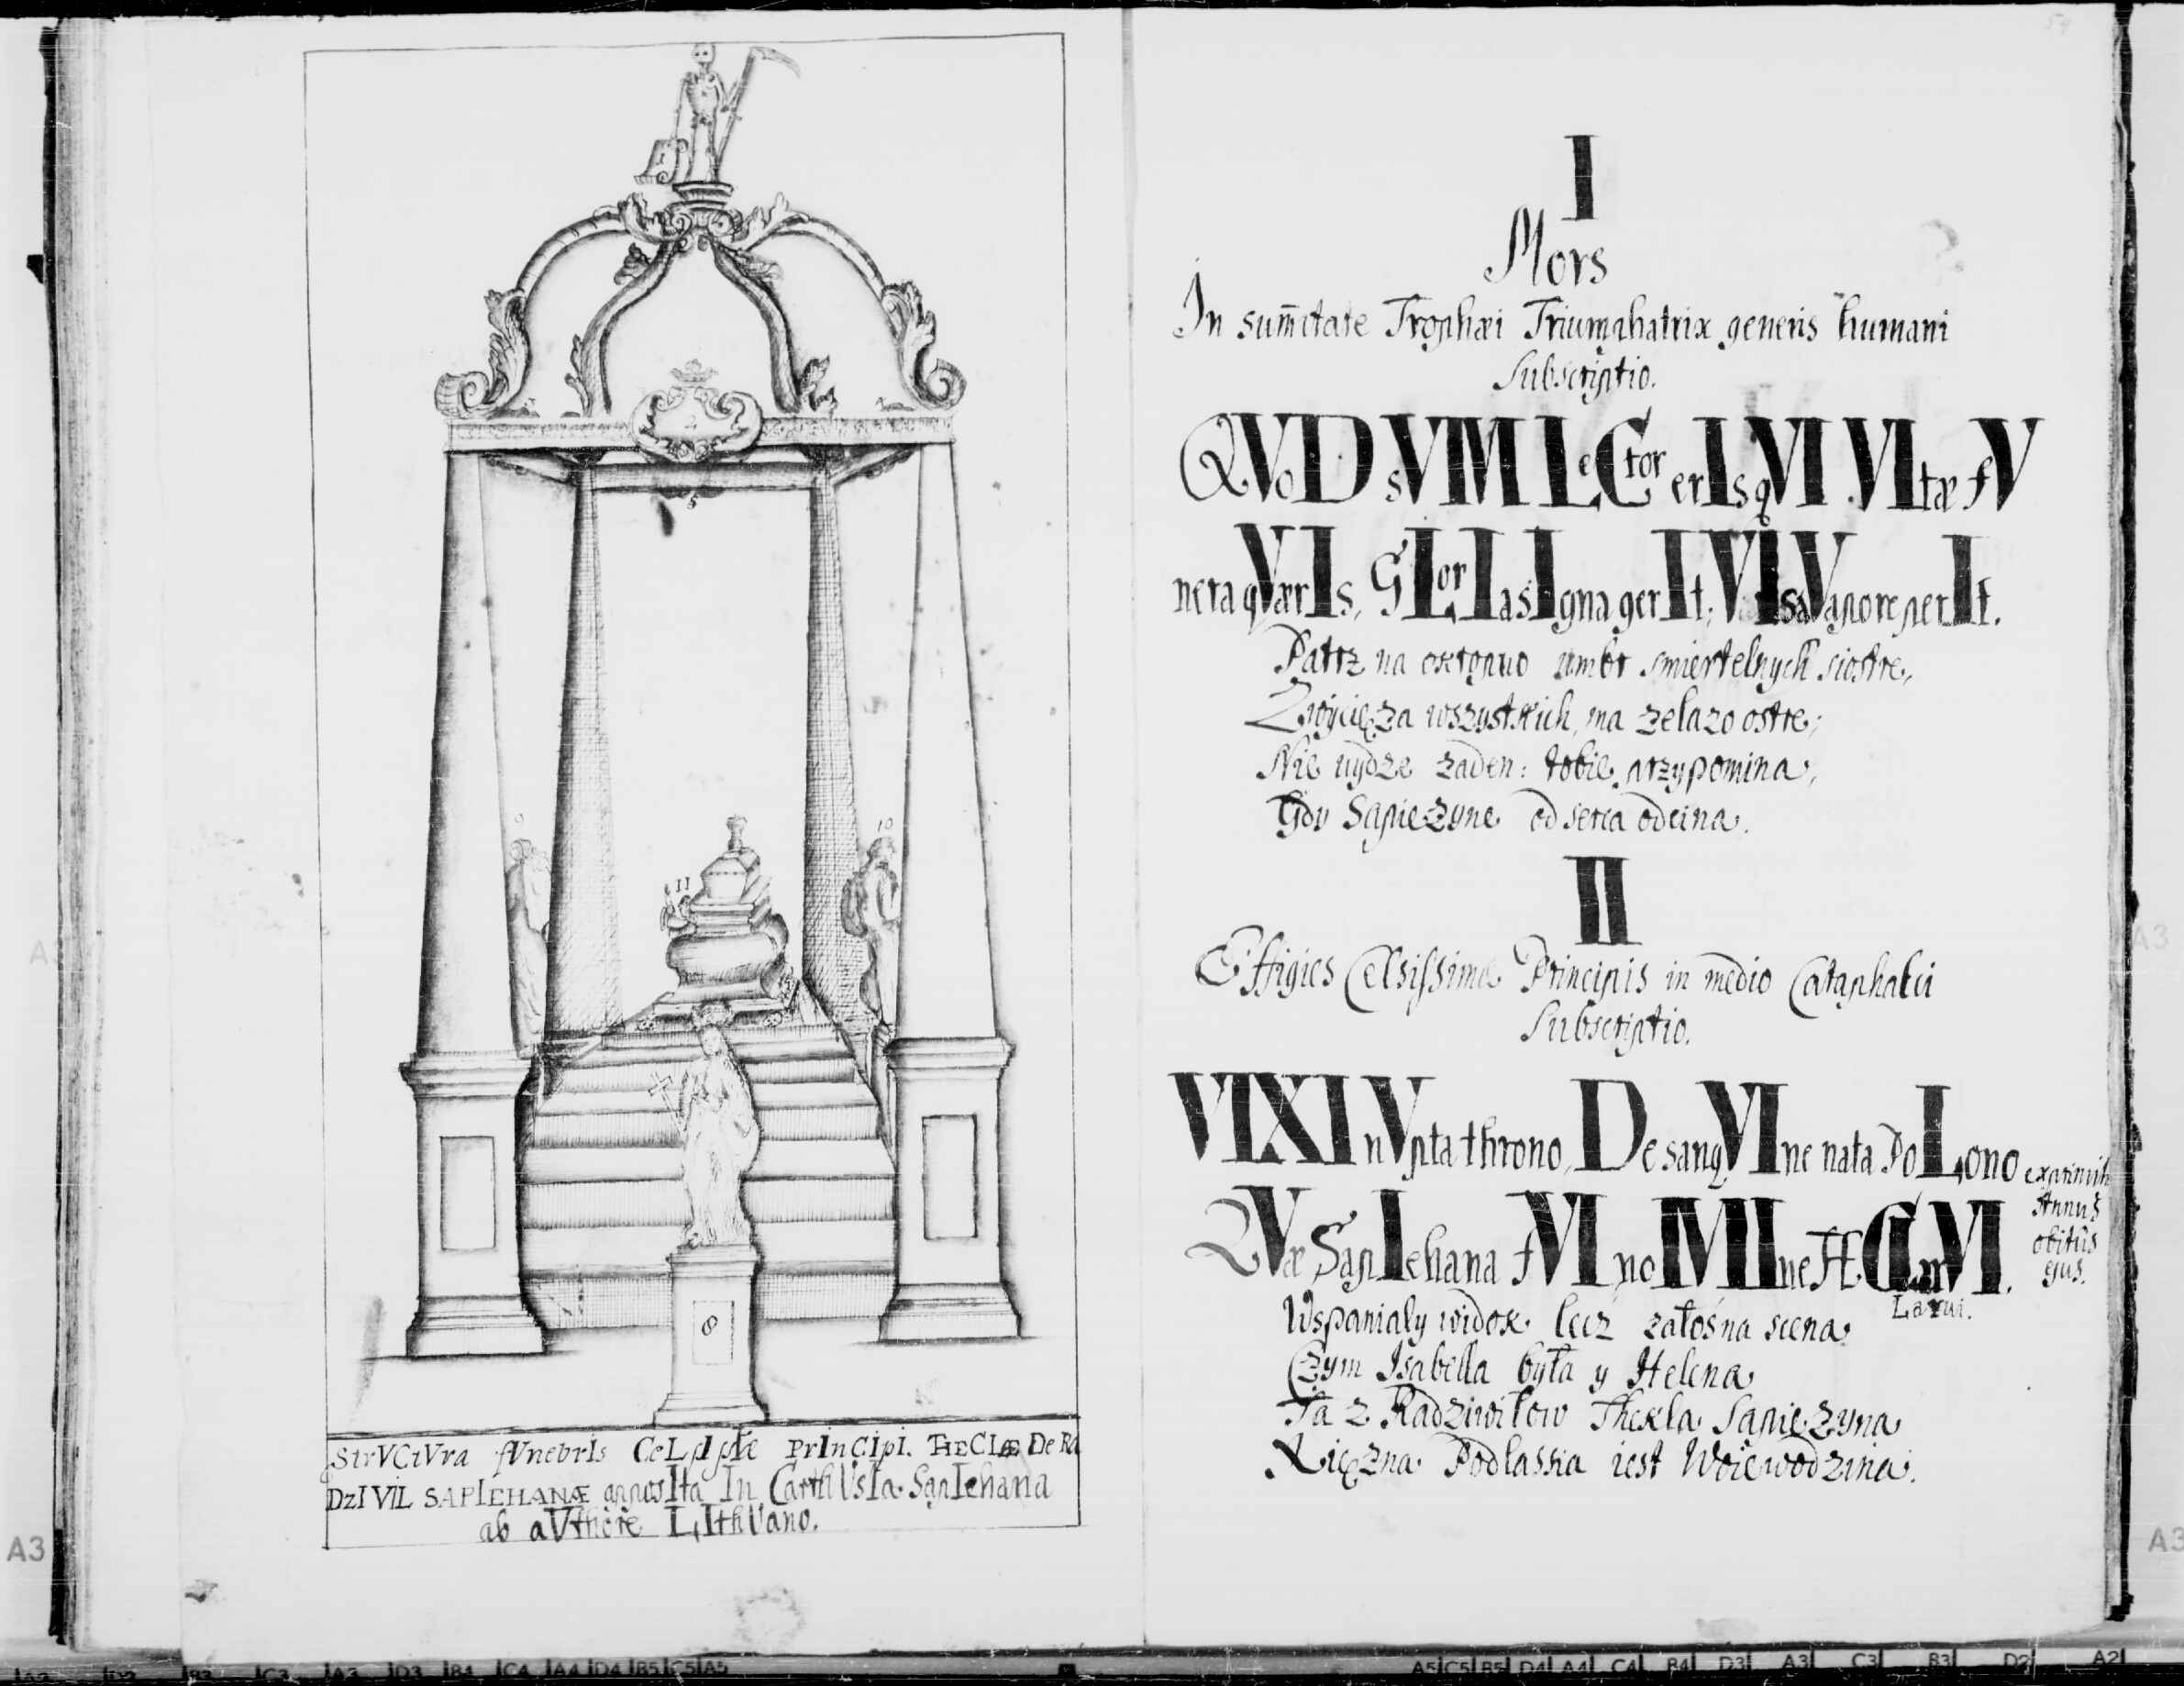 1
2
5
9
10
11
8
StrVCtVra fVnebrIs CeLsIssæ PrInCipi. THECLÆ De Ra
DzIVIL SAPIEHANÆ apposIta In CarthUsIa SapIehana
ab aVthore LIthUano.
54
I
Mors
In sum̄itate Trophæi Triumphatrix generis humani
Subscriptio.
QVoD sVM LeCtor erIs qVI VItæ fV
nera qVærIs, GLorIa sIgna gerIt; VIsa Vapore perIt.
Patrz na okropno umbr smiertelnych siostre,
Zwycięza wszystkich, ma zelazo ostre;
Nie uydze zaden: tobie przypomina,
Gdy Sapiezyne od serca odcina.
II
Effigies Celsissimæ Principis in medio Cataphalci
Subscriptio.
VIXI nVpta throno, De sanqVIne nata PoLono exprimit
QVæ SapIehana fVI noMIne H
Annus
obitûs
ejus.
Larui.
Wspanialy widok lecz załosna scena
Czym Isabella była y Helena
Ta z Radziwiłow Thekla Sapiezyna
Xięzna Podlassia iest Woiewodzina.
A3
A3
A3
A3
A2 D2 B3 C3 A3 D3 B4 C4 A4 D4 B5 C5 A5
A5 C5 B5 D4 A4 C4 B4 D3 A3 C3 B3 D2 A2